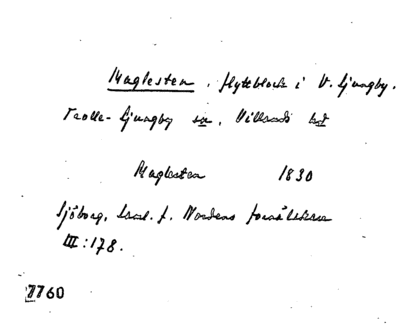 Maglesten, flyteblock i V. Ljungby.
Trolle-Ljungby sn, Villands hd
Maglesten 1830
Sjöborg, Saml. f. Nordens fornälskare
III:178.
7760